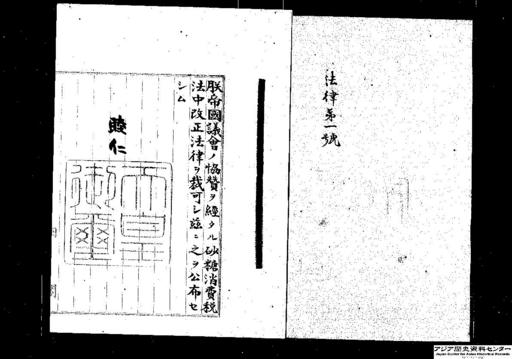 法律第一號
朕帝國議會ノ協贊ヲ經タル砂糖消費稅
法中改正法律ヲ裁可シ茲ニ之ヲ公布セ
シム
睦仁
天皇
御璽
アジア歴史資料センター
Japan Center for Asian Historical Records